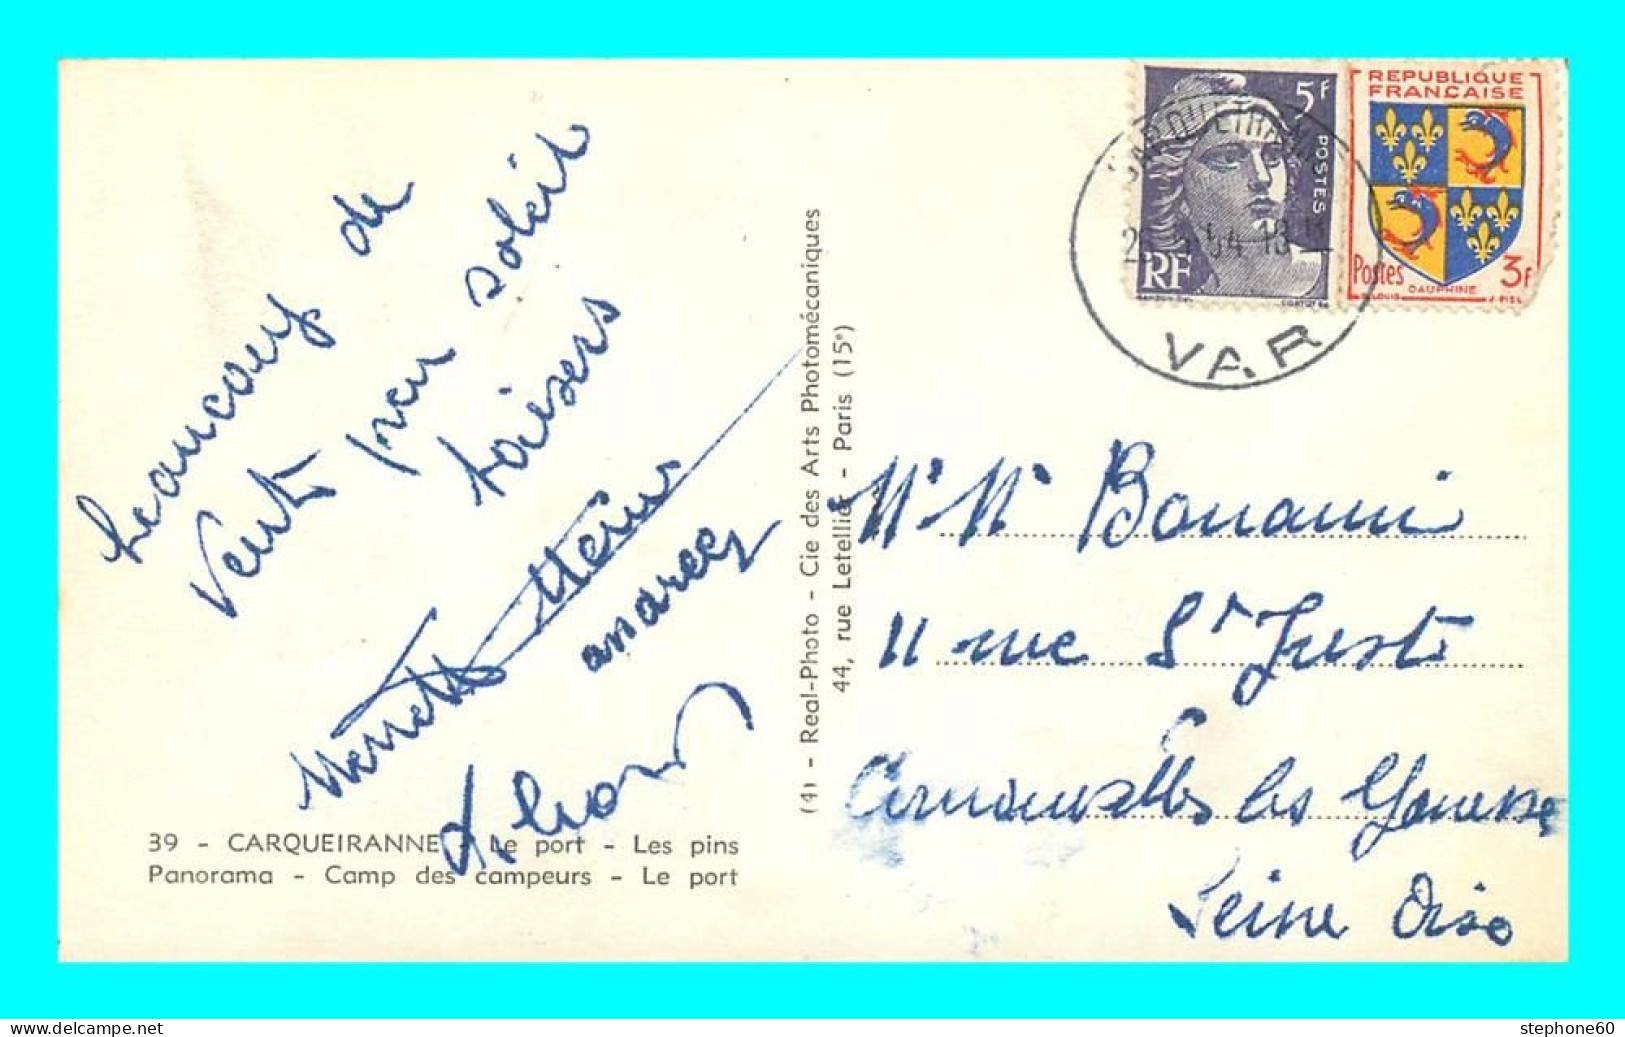 beaucoup de
vent peu soleil
baisers
Marcel
39 - CARQUEIRANNE - Le port - Les pins
Panorama - Camp des campeurs - Le port
(4) - Real-Photo - Cie des Arts Photomécaniques
44, rue Letellier - Paris (15e)
5F
POSTES
RF
REPUBLIQUE
FRANÇAISE
Postes 3F
DAUPHINE
CARQUEIRANNE
54 18
VAR
Mr Mr Bonami
11 rue St Just
les Gonesse
Seine Oise
stephone60